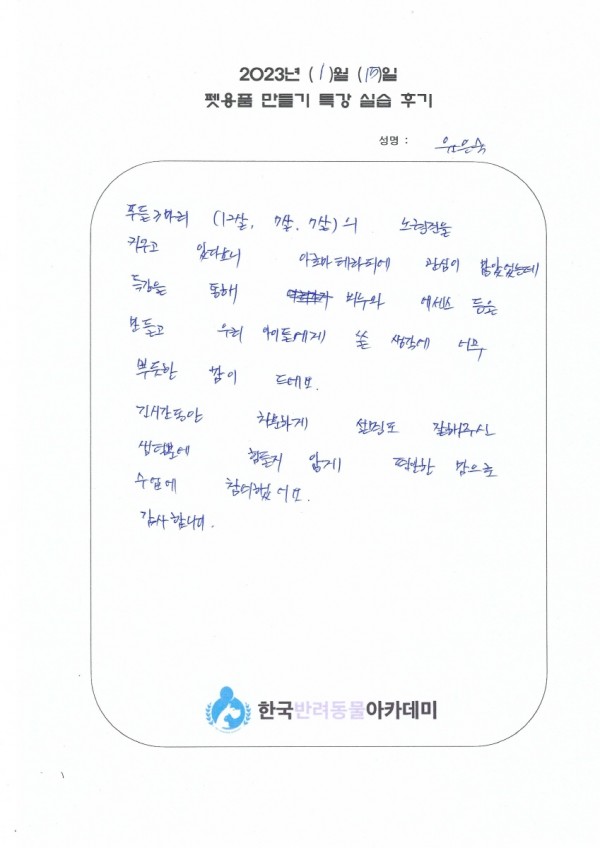 2023년 (1)월 (15)일
펫용품 만들기 특강 실습 후기
성명 : 유은숙
푸들 3마리 (12살, 7살, 7살)의 노령견을
키우고 있다보니 아로마테라피에 관심이 많았었는데
특강을 통해 비누와 에센스 등을
만들고 우리 아이들에게 쓸 생각에 너무
뿌듯한 맘이 드네요.
긴시간동안 차분하게 설명도 잘해주신
쌤덕분에 힘들지 않게 편안한 맘으로
수업에 참여했어요.
감사합니다.
한국반려동물아카데미